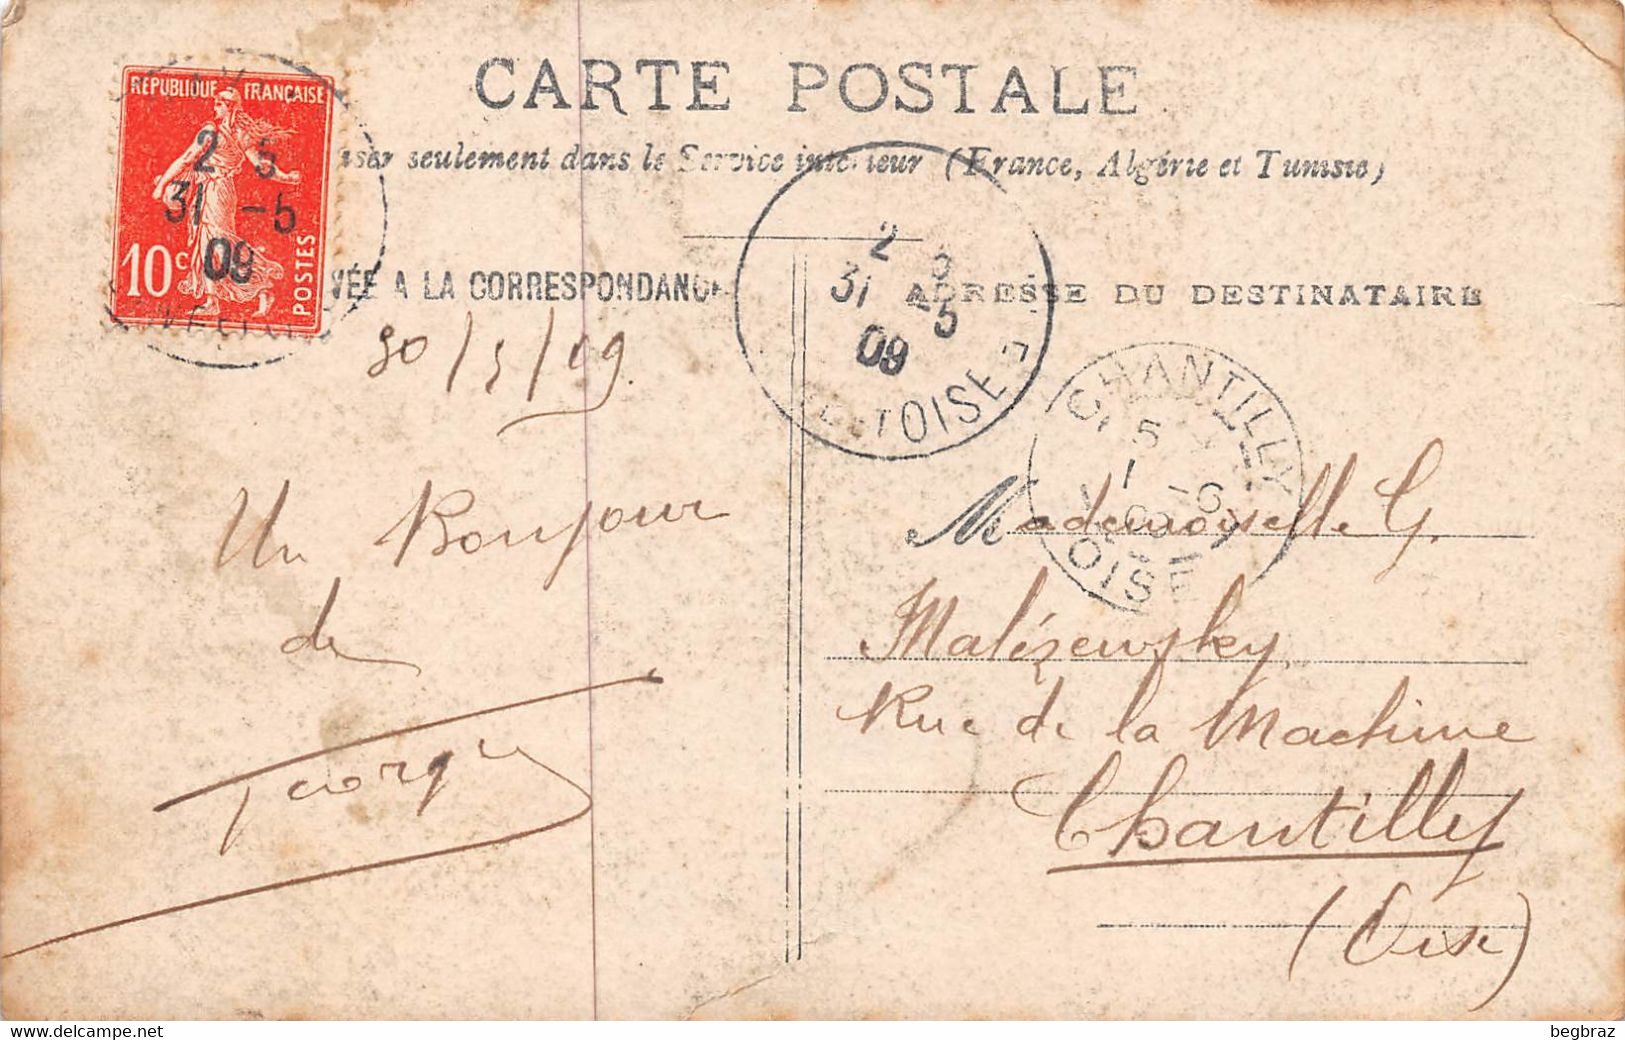 CARTE POSTALE
seulement dans le Service intérieur (France, Algérie et Tunisie)
RÉPUBLIQUE FRANÇAISE
10c POSTES
2 5
31 -5
09
VÉE A LA CORRESPONDANCE
ADRESSE DU DESTINATAIRE
2
31 -5
09
OISE
CHANTILLY
5
1 -6
OISE
30/5/09
Un Bonjour
de
Georges
Mademoiselle G.
Malézewsky
Rue de la Machine
Chantilly
(Oise)
www.delcampe.net
begbraz